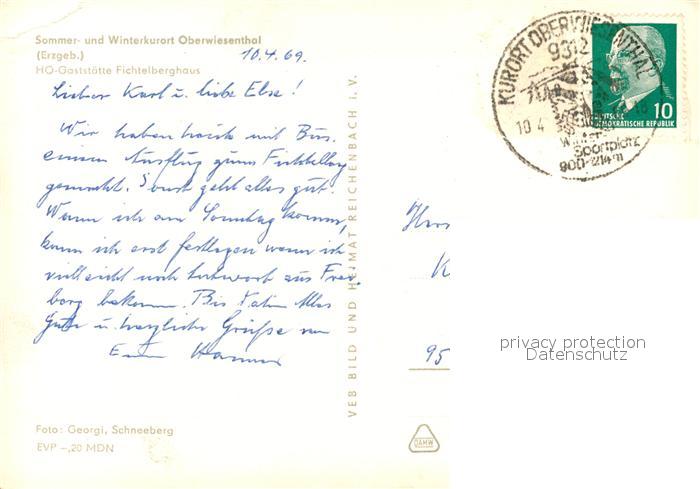 Sommer- und Winterkurort Oberwiesenthal
(Erzgeb.)
HO-Gaststätte Fichtelberghaus
10.4.69.
Lieber Karl u. liebe Else!
Wir haben heute mit Bus
einen Ausflug zum Fichtelberg
gemacht. Sonst geht alles gut.
Wann ich am Sonntag komme,
kann ich erst festlegen wenn ich
vielleicht noch Antwort aus Frei-
berg bekomme. Bis dahin Alles
Gute u. herzliche Grüße von
VEB BILD UND HEIMAT REICHENBACH i. V.
Foto: Georgi, Schneeberg
EVP -,20 MDN
DAMW
KURORT OBERWIESENTHAL
9312
10.4
Sportplatz
900-1214m
10
DEUTSCHE
DEMOKRATISCHE REPUBLIK
95
privacy protection
Datenschutz